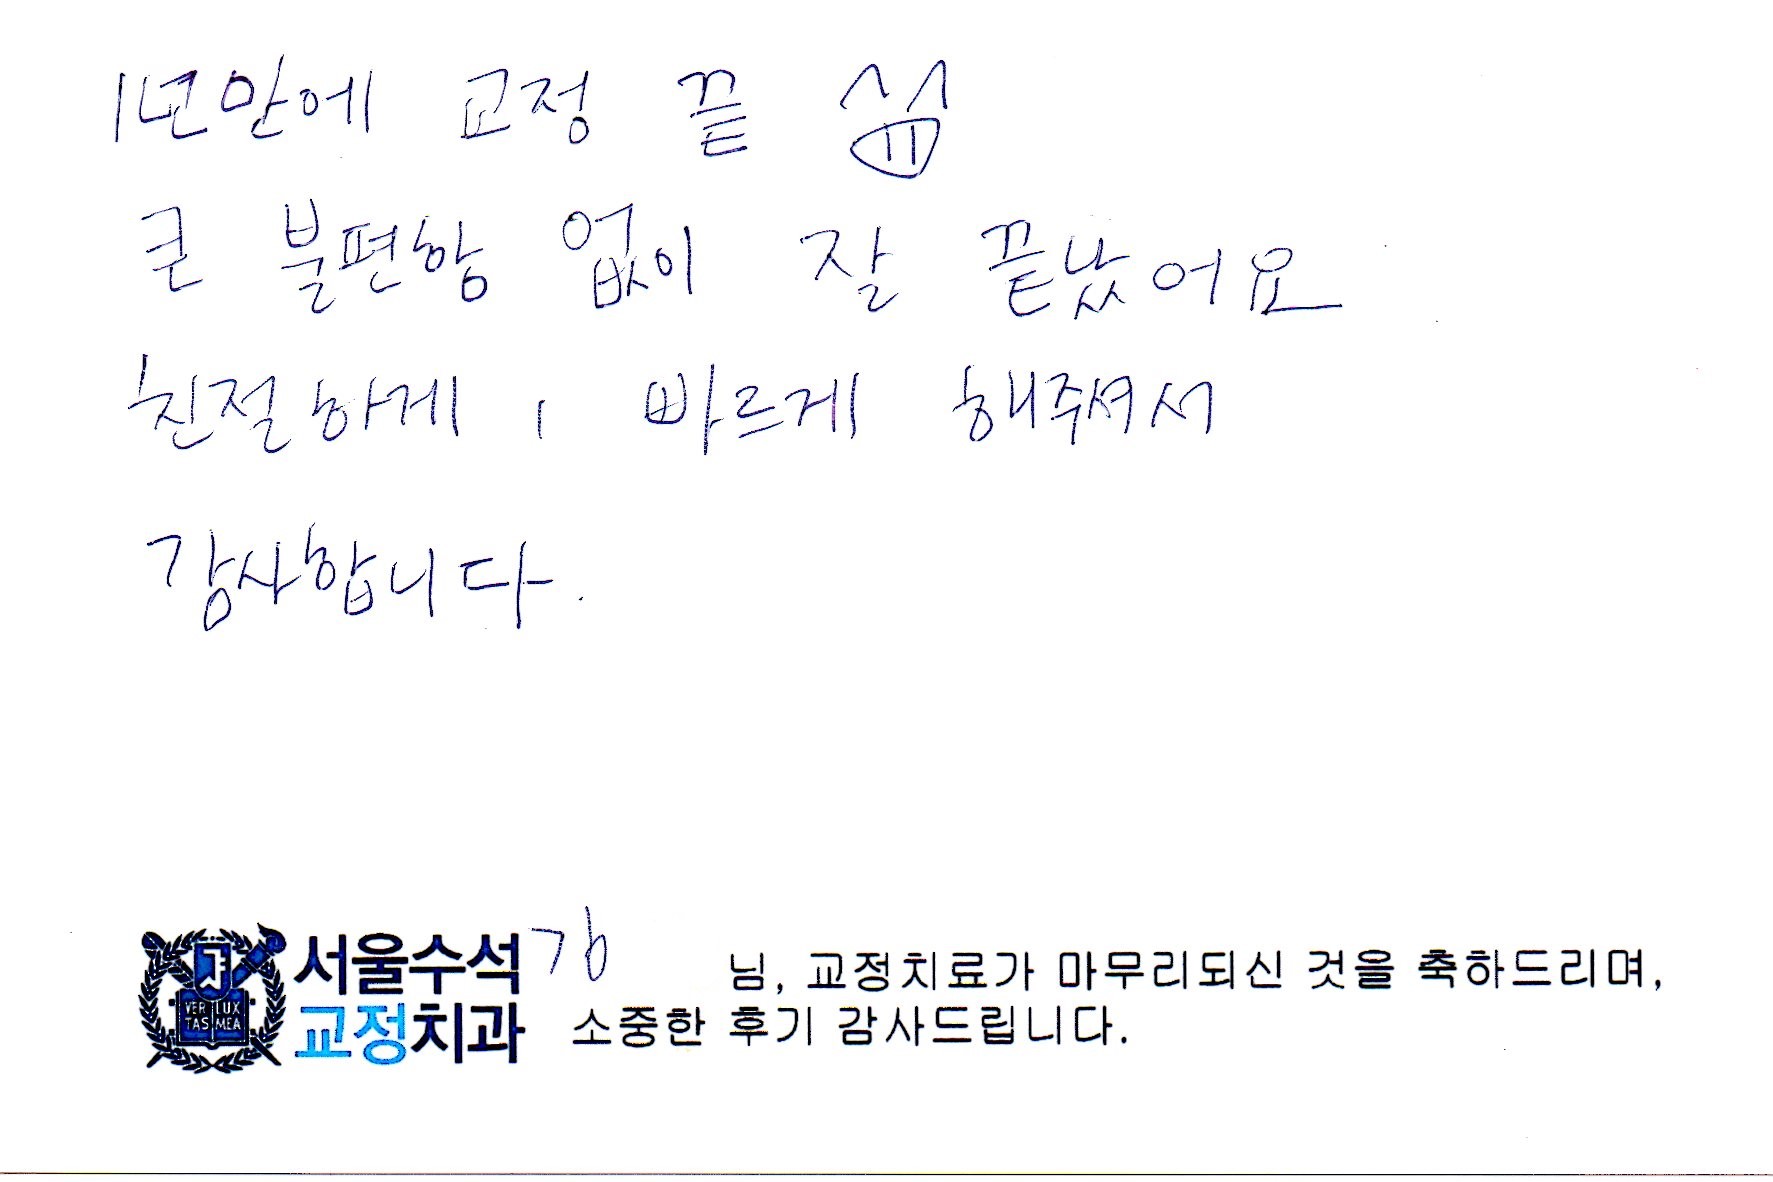 1년만에 교정 끝
큰 불편함 없이 잘 끝났어요
친절하게, 빠르게 해주셔서
감사합니다.
서울수석
교정치과
VERI LUX
TAS MEA
김 님, 교정치료가 마무리되신 것을 축하드리며,
소중한 후기 감사드립니다.